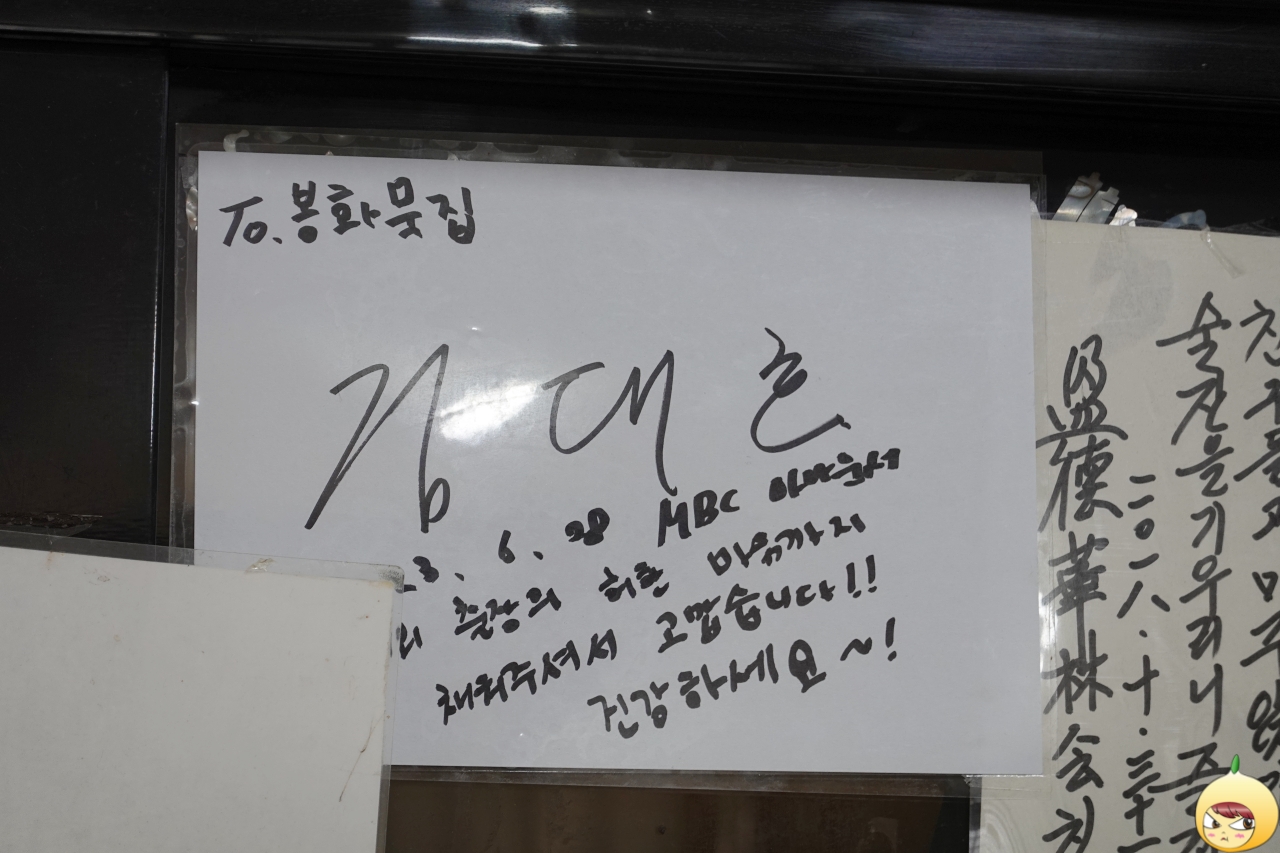 To. 봉화묵집
김대호
3. 6. 28 MBC 아나운서
출장의 허한 마음까지
채워주셔서 고맙습니다!!
건강하세요~!
친구들과 마주
술잔을 기우리니
二〇一八.十.三十
盈德華林会